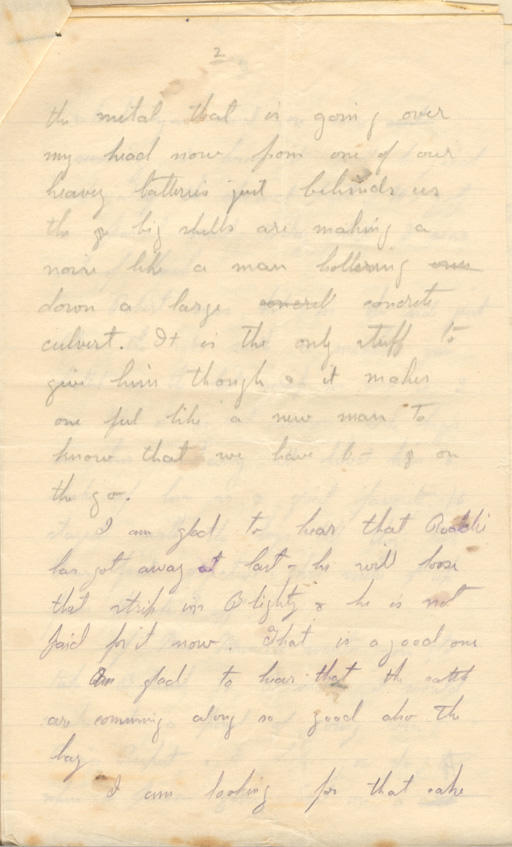 2
the metal that is going over
my head now from one of our
heavey batteries just behinds us
the big shells are making a
noise like a man hollering
down a large concrete
culvert. It is the only stuff to
give him though & it makes
one feel like a new man to
know that we have on
the go.
I am glad to hear that
has got away at last - he will loose
that strip in Blighty & he is not
paid for it now. That is a good one
Am glad to hear that the cattle
are comming along so good also the
hay
I am looking for that cake